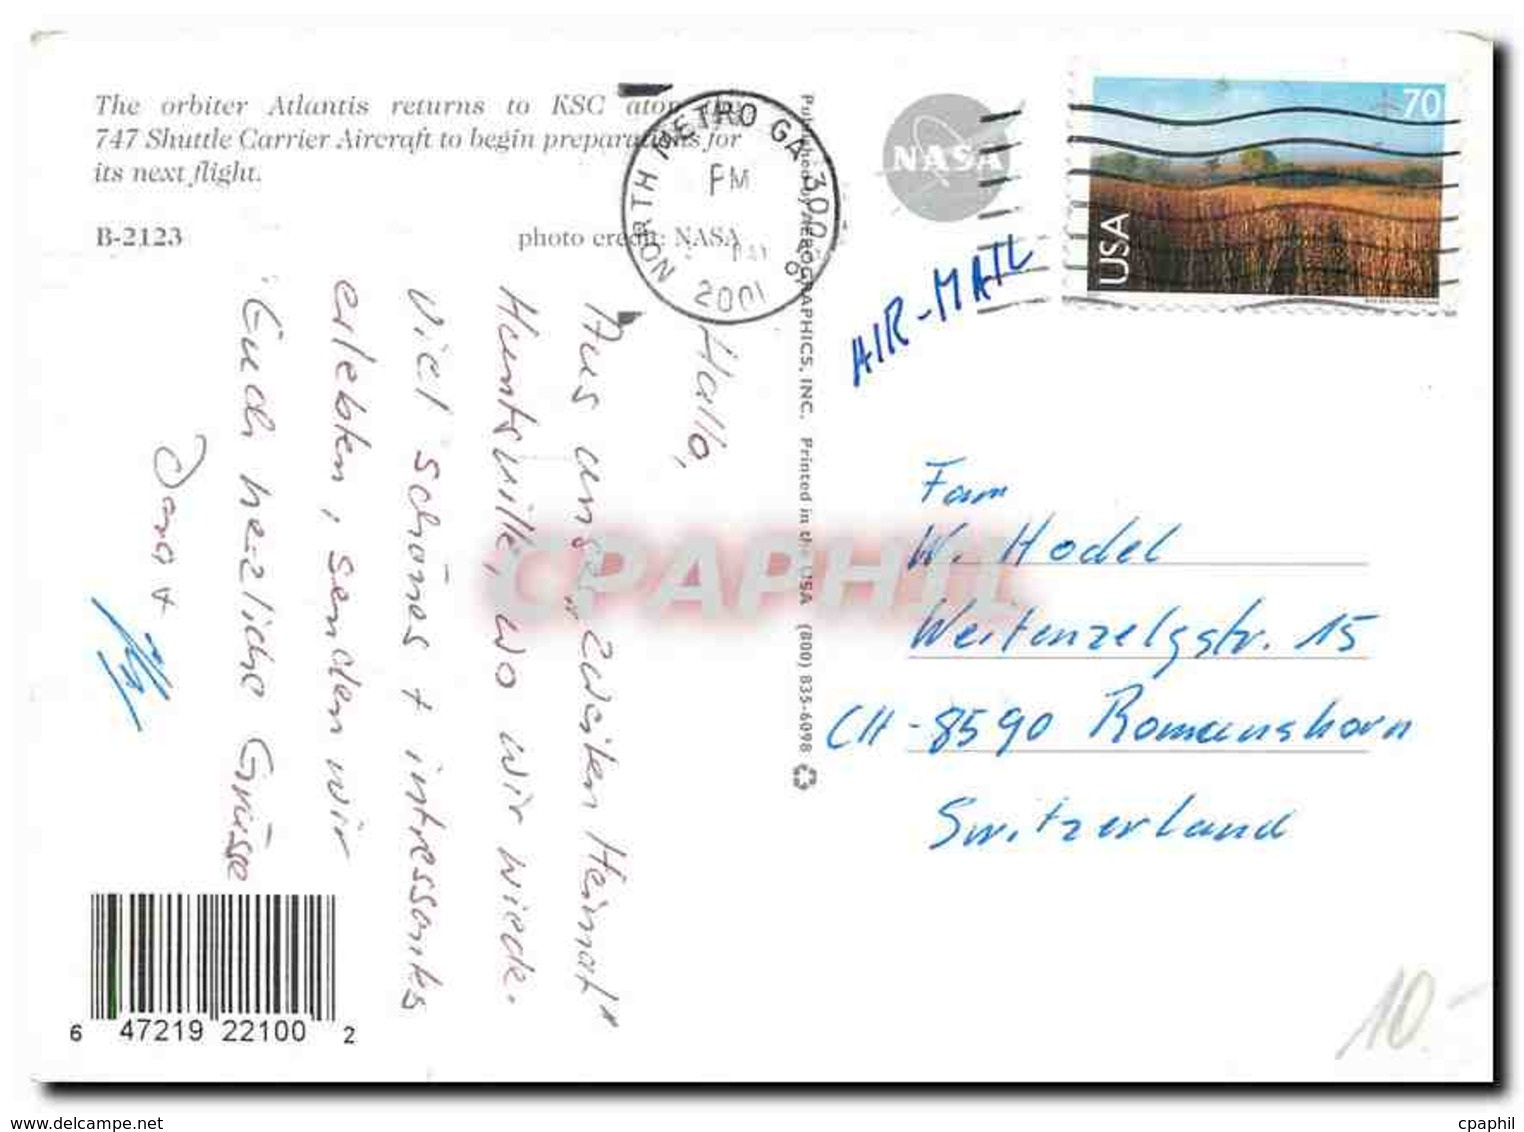 The orbiter Atlantis returns to KSC atop
747 Shuttle Carrier Aircraft to begin preparations for
its next flight.
B-2123
photo credit: NASA
NORTH METRO GA 300
PM
2001
NASA
70
USA
AIR-MAIL
Hallo,
Aus unser „zweiten Heimat"
Huntsville, wo wir wieder
viel schönes + intressantes
erlebten, senden wir
Euch herzliche Grüsse
Published by AEROGRAPHICS, INC. Printed in the USA (800) 835-6098
Fam
W. Hodel
Weitenzelgstr. 15
CH-8590 Romanshorn
Switzerland
6 47219 22100 2
10.-
CPAPHIL
www.delcampe.net
cpaphil